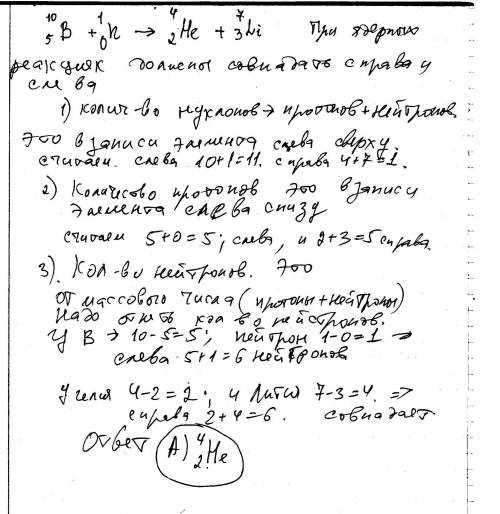 ¹⁰₅B + ¹₀n → ⁴₂He + ⁷₃Li При ядерных
реакциях должны совпадать справа и
слева
1) колич-во нуклонов → протонов + нейтронов.
Это в записи элемента слева сверху.
считаем. слева 10+1=11. справа 4+7=1.
2) Количество протонов это в записи
элемента слева снизу
считаем 5+0=5; слева, и 2+3=5 справа.
3). Кол-во нейтронов. Это
от массового числа (протоны + нейтроны)
надо отнять кол во нейтронов.
У В → 10-5=5; нейтрон 1-0=1 →
слева 5+1=6 нейтронов
У гелия 4-2=2; и Лития 7-3=4. =>
справа 2+4=6. совпадает
Ответ А) ⁴₂He